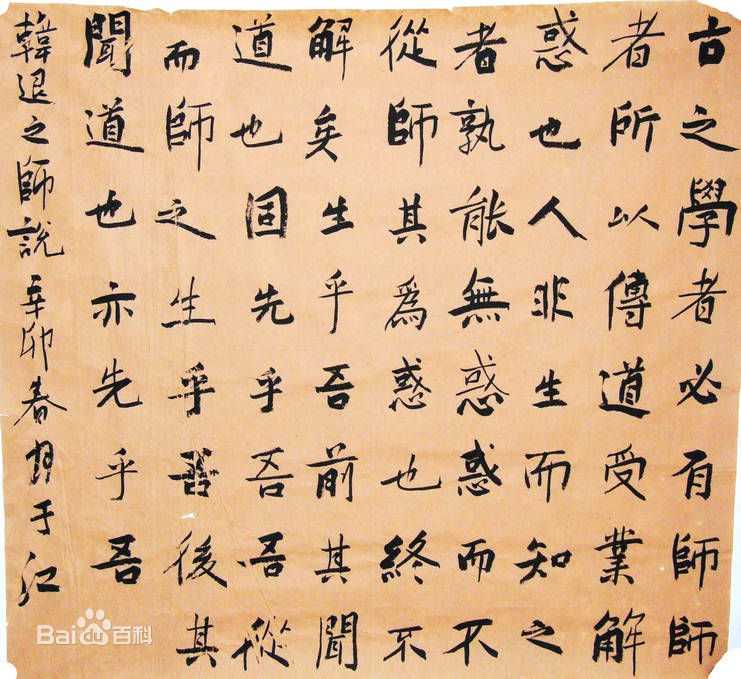 古之學者必有師師
者所以傳道受業解
惑也人非生而知之
者孰能無惑惑而不
從師其爲惑也終不
解矣生乎吾前其聞
道也固先乎吾吾從
而師之生乎吾後其
聞道也亦先乎吾
韓退之師說辛卯春月于江
Bai百科